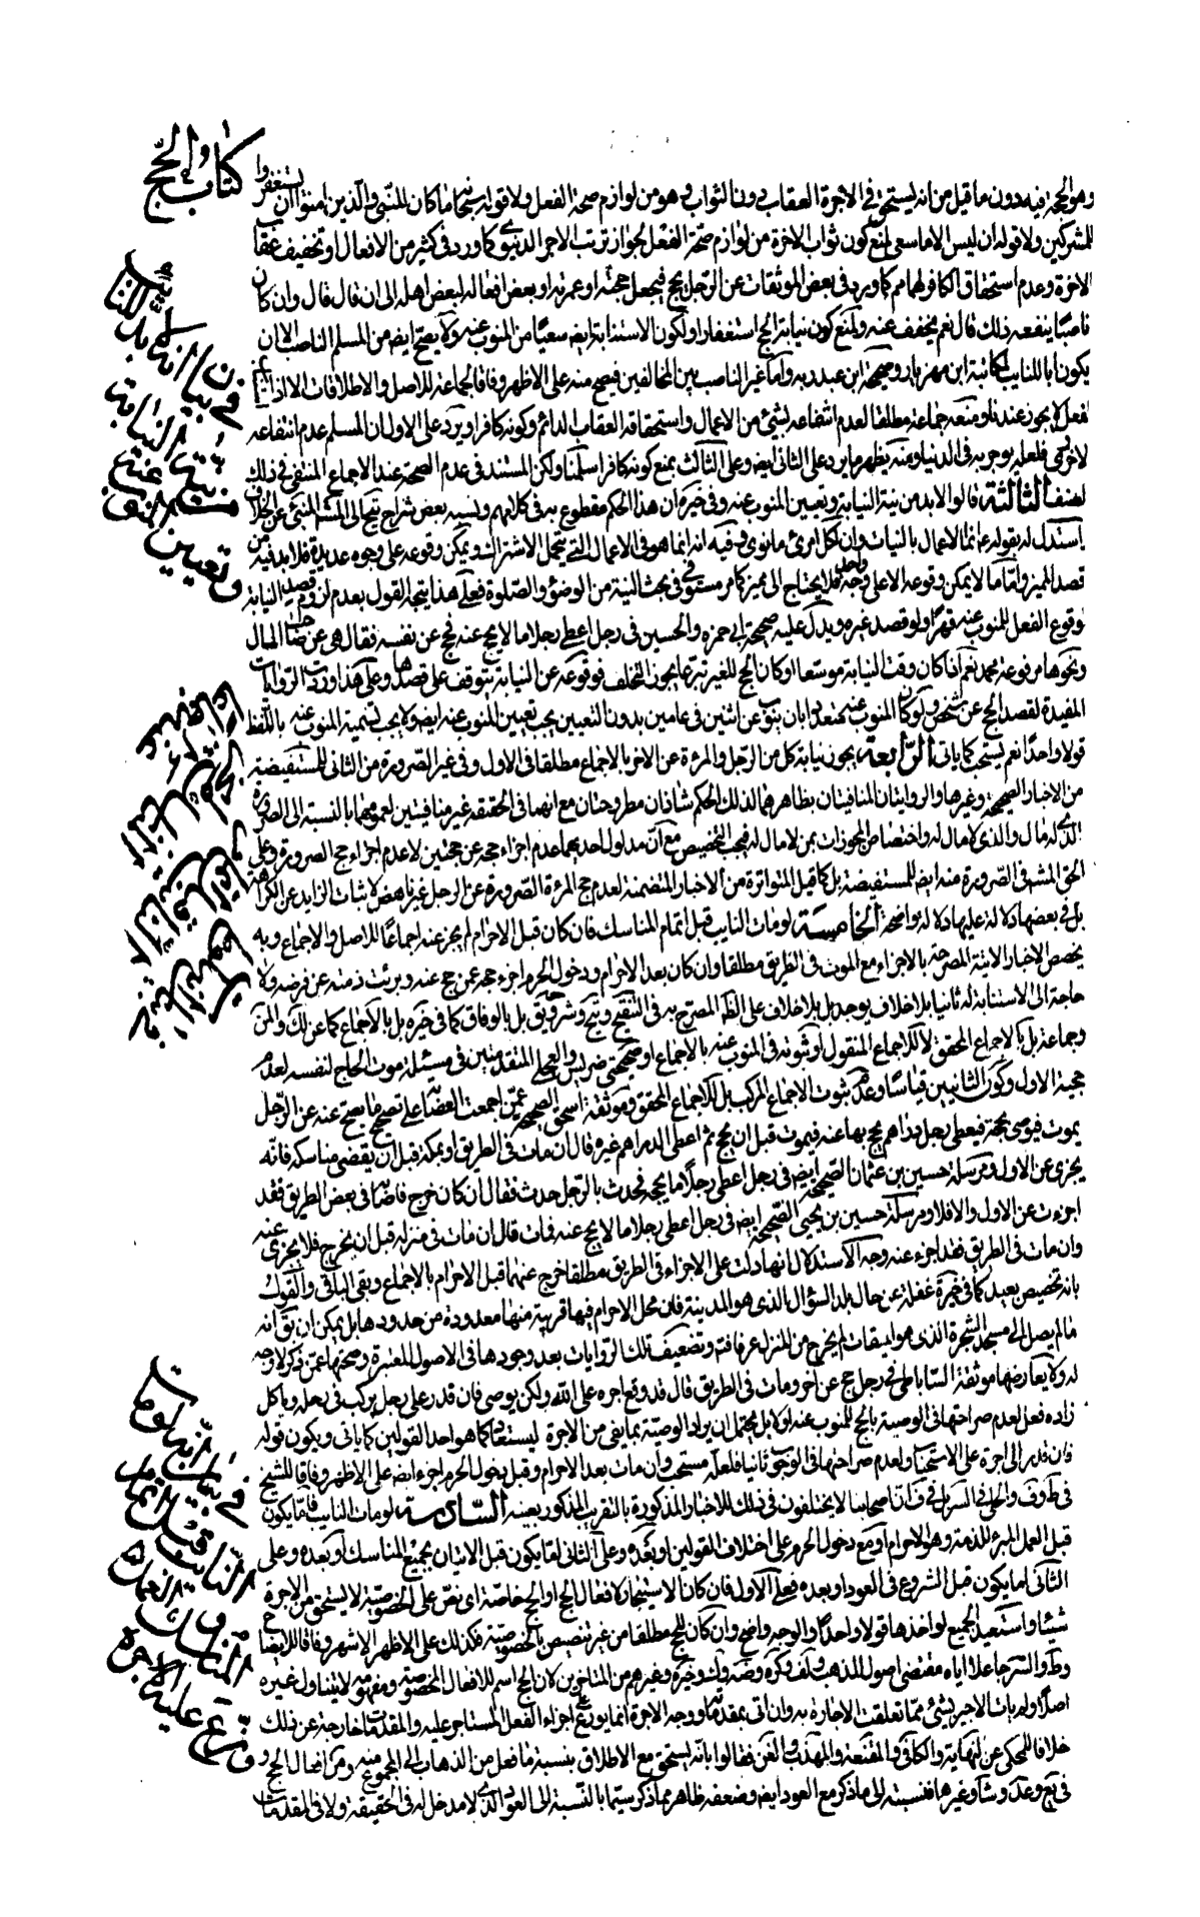 كتاب الحج
وهو الحجة فيه دون ما قيل من انه يستحق في الاجرة العقاب دون الثواب وهو من لوازم صحة الفعل ولا قوله سبحانه ما كان للنبى والذين امنوا ان يستغفروا
للمشركين ولا قوله ان ليس الا ما سعى لمنع كون ثواب الاخرة من لوازم صحة الفعل لجواز ترتب الاجر الدنيوى كما ورد فى كثير من الافعال او تخفيف عقاب
الاخرة وعدم استحقاق الكافر لهما مم كما ورد فى بعض الموثقات عن الرجل يحج فيجعل حجته او عمرته او بعض افعاله لبعض اهله الى ان قال قال وان كان
ناصبا ينفعه ذلك قال نعم يخفف عنه ولمنع كون نيابة الحج استغفارا ولكون الاستنابة ايضه سعيا من المنوب عنه ولا يصح ايضه من المسلم الناصب الا ان
يكون ابا للنايب لمكاتبة ابن مهزيار وصحيحة ابن عبد ربه واما غير الناصب من المخالفين فيصح منه على الاظهر وفاقا لجماعة للاصل والاطلاقات الا اذا
لفعل لا يجوز عندنا ومنعه جماعة مطلقا لعدم انتفاعه بشئ من الاعمال واستحقاقه العقاب الدائم وكونه كافرا ويرد على الاول ان المسلم عدم انتفاعه
لاخروى فلعله يوجر به فى الدنيا ومنه يظهر ما يرد على الثانى ايضه وعلى الثالث بمنع كونه كافرا سلمنا ولكن المستند فى عدم الصحة عند الاجماع المنتفى فى ذلك
لصنف الثالثة قالوا لابد من نية النيابة وتعيين المنوب عنه وفى خيره ان هذا الحكم مقطوع به فى كلامهم ونسبه بعض شراح يع الى المشهور المنبئ عن الخلاف
استدل له بقوله ع انما الاعمال بالنيات وان لكل امرئ ما نوى وفيه انه انما هو فى الاعمال التى يتحمل الاشتراك ويمكن وقوعه على وجوه عديدة فلا بد فيه من
قصد المميز واما ما لا يمكن وقوعه الا على وجه واحد فلا يحتاج الى مميز كما مر مستوفى فى بحث النية من الوضوء والصلوة فعلى هذا يتجه القول بعدم لزوم قصد النيابة
لوقوع الفعل للمنوب عنه قهرا ولو قصد غيره ويدل عليه صحيحة ابى حمزه والحسين فى رجل اعطى رجلا مالا يحج عنه فحج عن نفسه فقال هى عن صاحب المال
ونحوها مرفوعة محمد نعم اذا كان وقت النيابة موسعا او كان الحج للغير تبرعا يجوز التخلف فوقوعه عن النيابة يتوقف على قصدها وعلى هذا وردت الروايات
المفيدة لقصد الحج عن شخص ولو كان المنوب عنه متعددا بان ينوب عن اثنين فى عامين بدون التعيين يجب تعيين المنوب عنه ايضه ولا يجب تسمية المنوب عنه باللفظ
قولا واحدا نعم يستحب كما ياتى الرابعة يجوز نيابة كل من الرجل والمرءة عن الاخر بالاجماع مطلقا فى الاول وفى غير الصرورة من الثانى للمستفيضة
من الاخبار الصحيحة وغيرها والروايتان المنافيتان بظاهرهما لذلك الحكم شاذتان مطروحتان مع انهما فى الحقيقة غير منافيتين لعمومهما بالنسبة الى الصرورة
الذى له مال والذى لا مال له واختصاص المجوزات بمن لا مال له فيجب التخصيص مع ان مدلول احديهما عدم اجزاء حجه عن حجتين لا عدم اجزاء حج الصرورة وعلى
الحق المشهور فى الصرورة منه ايضه للمستفيضة بل كما قيل المتواترة من الاخبار المتضمنة لعدم حج المرءة الصرورة عن الرجل غير ناهض لاثبات الزايد عن الكراهة
بل فى بعضها دلالة عليها دلالة واضحة الخامسة لو مات النايب قبل اتمام المناسك فان كان قبل الاحرام لم يجز عنه اجماعا للاصل والاجماع وبه
يخصص الاخبار الاتية المصرحة بالاجزاء مع الموت فى الطريق مطلقا وان كان بعد الاحرام ودخول الحرم اجزء حجه عمن حج عنه وبرئت ذمته عن فرضه ولا
حاجة الى الاستنابة له ثانيا بلا خلاف يوجد بل بلا خلاف على الظ المصرح به فى التنقيح ويع وشرحه بل بالوفاق كما فى خيره بل بالاجماع كما عن لك والمن
وجماعة بل بالاجماع المحقق لا للاجماع المنقول او ثبوته فى المنوب عنه بالاجماع او صحيحتى ضريس والعجلى المتقدمتين فى مسئلة موت الحاج لنفسه لعدم
حجية الاول وكون الثانيين قياسا وعدم ثبوت الاجماع المركب بل للاجماع المحقق وموثقة اسحق الصحيحة عمن اجمعت العصابة على تصحيح ما يصح عنه عن الرجل
يموت فيوصى بحجة فيعطى رجل دراهم يحج بها عنه فيموت قبل ان يحج ثم اعطى الدراهم غيره قال ان مات فى الطريق او بمكة قبل ان يقضى مناسكه فانه
يجزى عن الاول ومرسلة حسين بن عثمان الصحيحة ايضه فى رجل اعطى رجلا ما يحجه فحدث بالرجل حدث فقال ان كان خرج فاصابه فى بعض الطريق فقد
اجزءت عن الاول والا فلا ومرسلة حسين بن يحيى الصحيحة ايضه فى رجل اعطى رجلا مالا يحج عنه فمات قال ان مات فى منزله قبل ان يخرج فلا يجزى عنه
وان مات فى الطريق فقد اجزء عنه وجه الاستدلال انها دلت على الاجزاء فى الطريق مطلقا خرج عنهما قبل الاحرام بالاجماع وبقى الباقى والقول
بانه تخصيص بعيد كما فى خيرة غفلة عن حال بلد السؤال الذى هو المدينة فان محل الاحرام فيها قريبة منها معدودة من حدودها بل يمكن ان يق انه
ما لم يصل الى مسجد الشجرة الذى هو الميقات لم يخرج من المنزل عرفا فتم وتضعيف تلك الروايات بعد وجودها فى الاصول المعتبرة وصحتها عمن ذكر لا وجه
له ولا يعارضها موثقة الساباطى فى رجل حج عن اخر ومات فى الطريق قال قد وقع اجره على الله ولكن يوصى فان قدر على رجل يركب فى رحله وياكل
زاده فعل لعدم صراحتها فى الوصية بالحج للمنوب عنه اولا بل يحتمل ان يراد الوصية بما بقى من الاجرة ليستعاد كما هو احد القولين كما ياتى ويكون قوله
فان قدر الى اجره على الاستحباب ولعدم صراحتها فى الوجوب ثانيا فلعله مستحب وان مات بعد الاحرام وقبل دخول الحرم اجزء ايضه على الاظهر وفاقا للشيخ
فى ط وف والحلى فى السرائر فى ان اصحابنا لا يختلفون فى ذلك للاخبار المذكورة بالتقريب المذكور بعينه السادسة لو مات النايب فاما يكون
قبل العمل المبرء للذمة وهو الاحرام او مع دخول الحرم على اختلاف القولين او بعده وعلى الثانى اما يكون قبل الاتيان بجميع المناسك او بعده وعلى
الثانى اما يكون قبل الشروع فى العود او بعده فعلى الاول فان كان الاستيجار لافعال الحج او الحج خاصة اى نص على الخصوصية لا يستحق من الاجرة
شيئا واستعيد الجميع لو اخذها قولا واحدا والوجه واضح وان كان للحج مطلقا من غير تنصيص بالخصوصية فكذلك على الاظهر الاشهر وفاقا للايضاح
وط والسرائر جاعلا اياه مقتضى اصول المذهب ولف وكره وضه ولك وخيره وغيرهم من المتاخرين لان الحج اسم للافعال المخصوصة ومفهومه لا يتناول غيره
اصلا ولم يات الاجير بشئ مما تعلقت الاجارة به وان اتى بمقدماته ووجه الاجرة انما يوزع على اجزاء الفعل المستاجر عليه والمقدمات خارجة عن ذلك
خلافا للمحكى عن النهاية والكافى والمقنعة والمهذب والغنية فقالوا بانه يستحق مع الاطلاق بنسبة ما فعل من الذهاب الى المجموع منه ومن افعال الحج و
فى يع وعد وشاد وغيرها فنسبته الى ما ذكر مع العود ايضه وضعفه ظاهر مما ذكر سيما بالنسبة الى العود الذى لا مدخل له فى الحقيقة ولا فى المقدمات
فى بيان انه لابد للنائب
من نية النيابة
وتعيين المنوب عنه
فى بيان انه لو مات
النايب قبل اتمام
المناسك